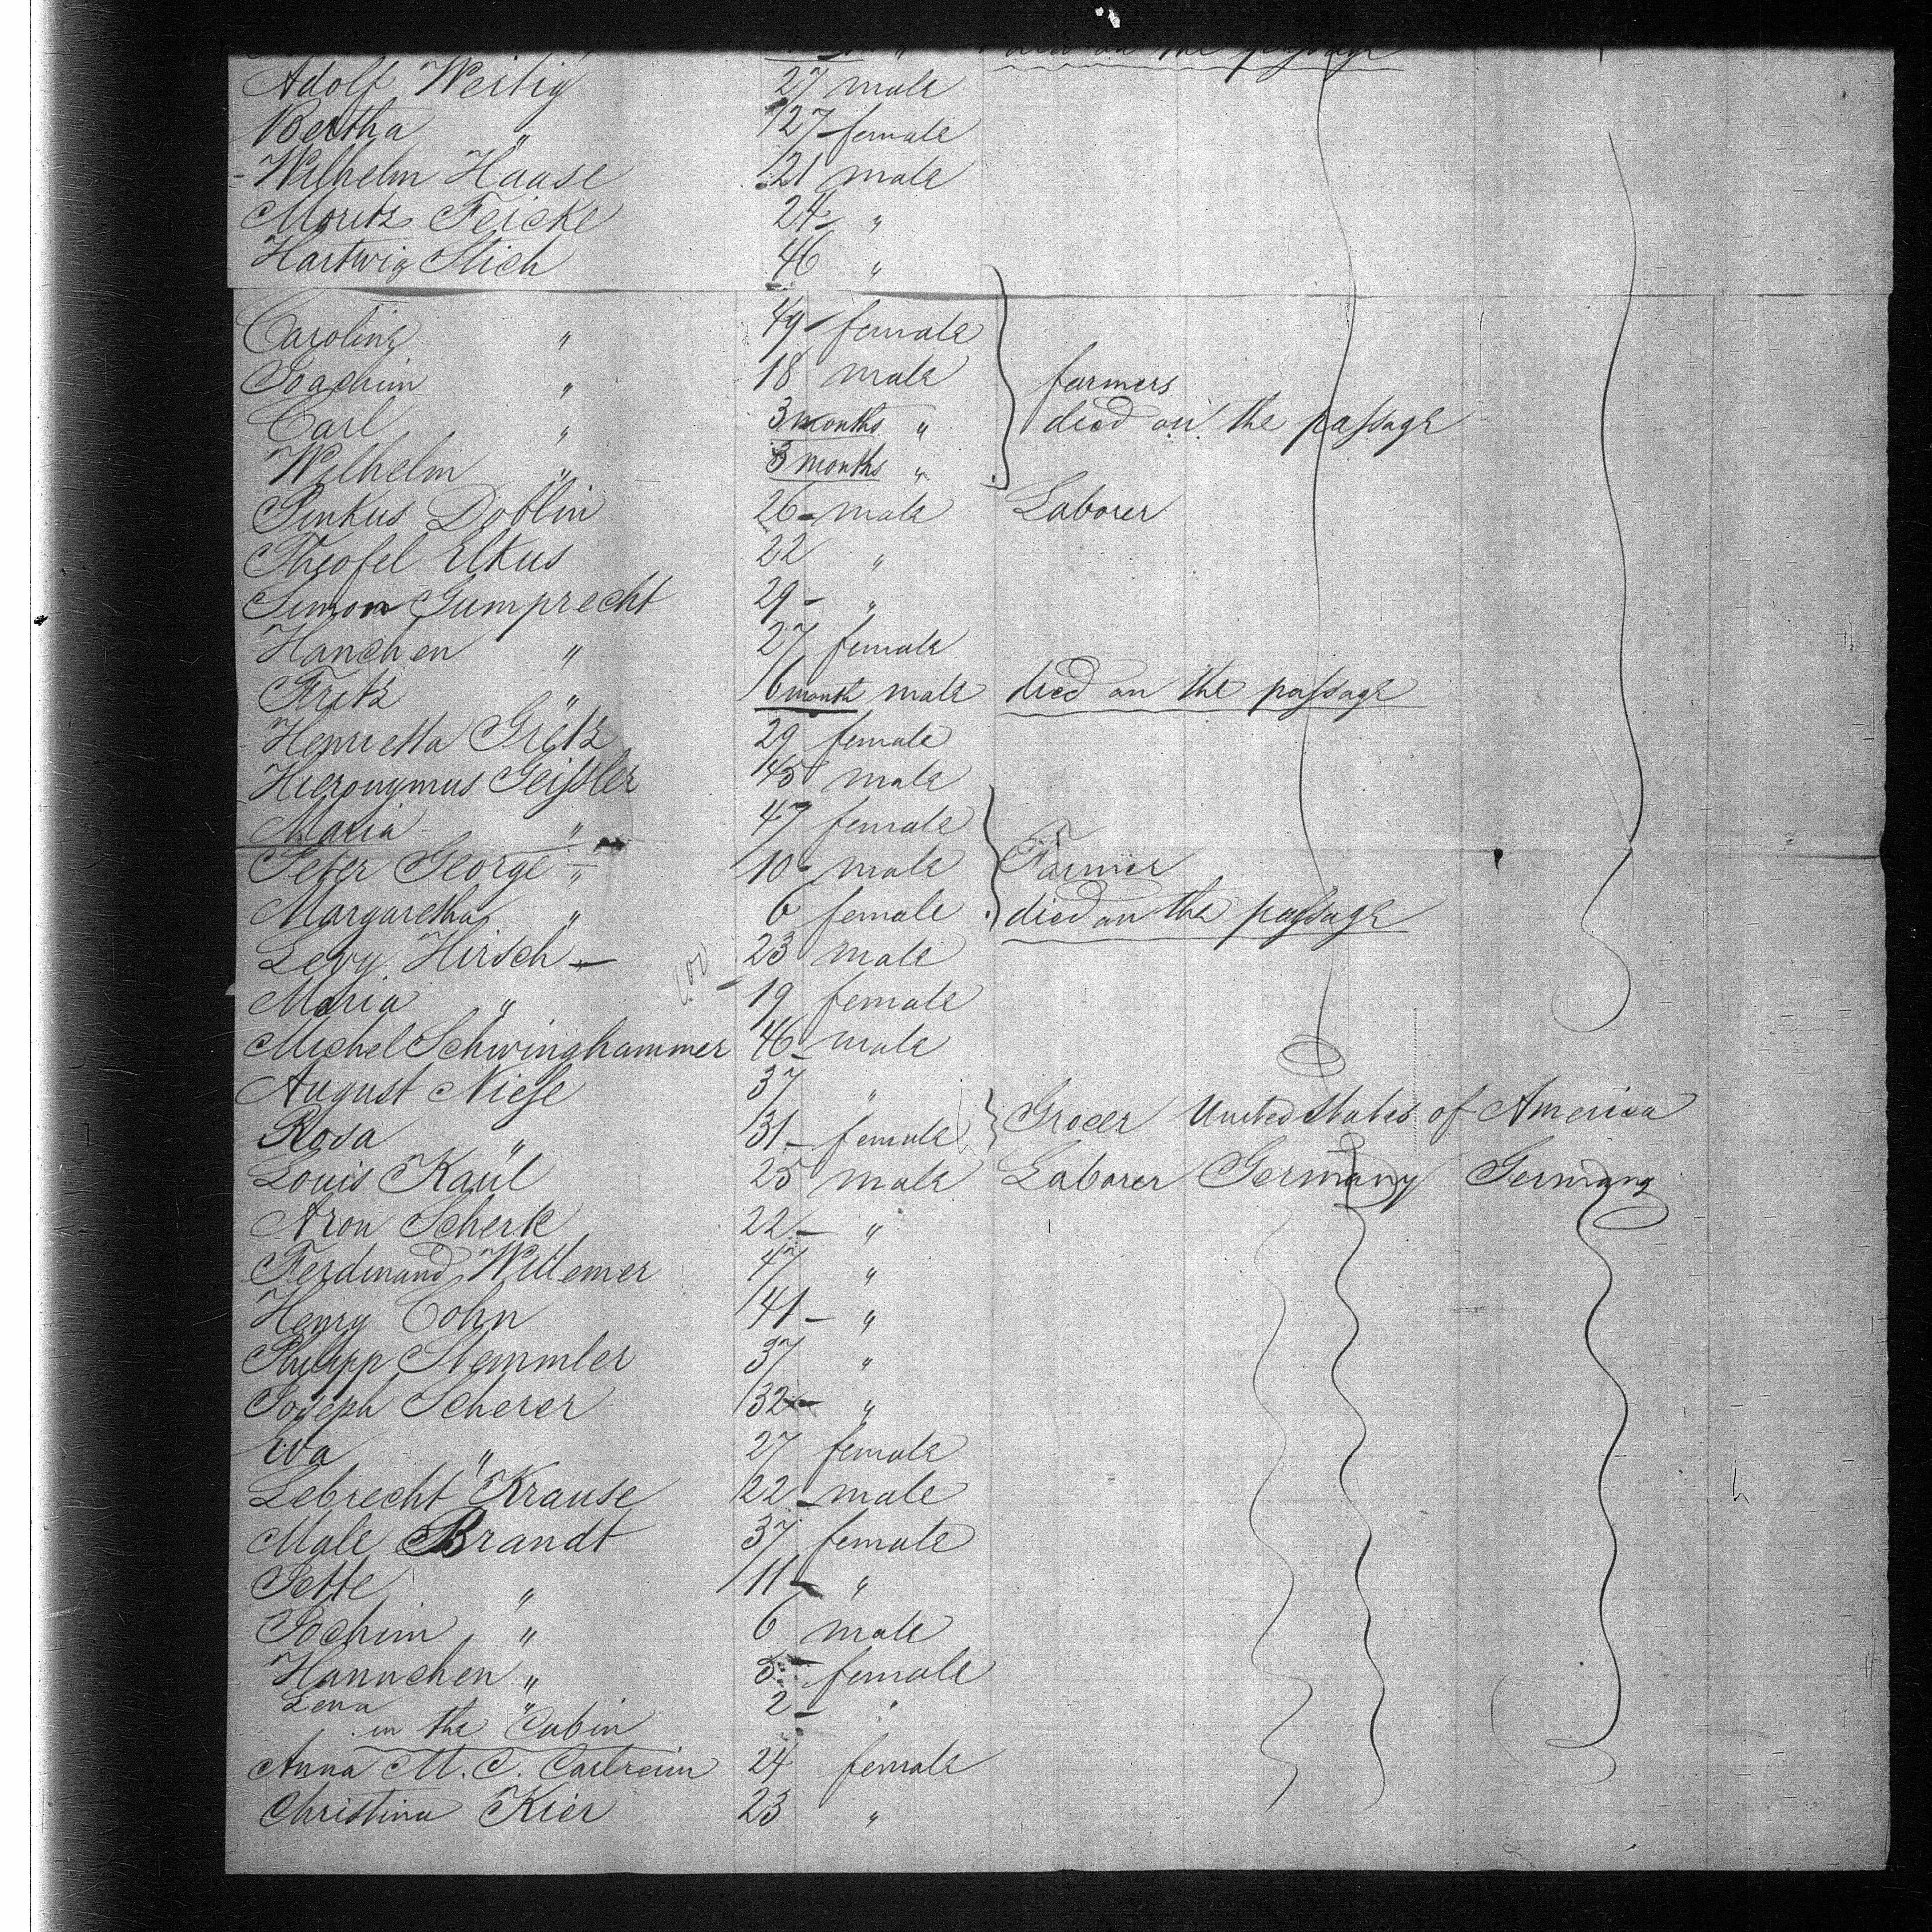 died on the passage
Adolf Weitig 27 male
Bertha " 27 female
Wilhelm Haase 21 male
Moritz Feicke 24 "
Hartwig Stich 46 "
Caroline " 49 female
Joachim " 18 male farmers
Carl " 3 months " died on the passage
Wilhelm " 3 months "
Pinkus Doblin 26 male Laborer
Theofel Elkus 22 "
Simon Gumprecht 29 "
Hanchen " 27 female
Fritz " 6 month male died on the passage
Henrietta Gietz 29 female
Hieronymus Geissler 45 male
Maria " 47 female
Peter George " 10 male Farmer
Margaretha " 6 female died on the passage
Levy Hirsch 23 male
Maria " 19 female
Michel Schwinghammer 46 male
August Niese 37 "
Rosa " 31 female Grocer United States of America
Louis Kaul 25 male Laborer Germany Germany
Aron Scherk 22 "
Ferdinand Willemer 47 "
Henry Cohn 41 "
Philipp Stemmler 37 "
Joseph Scherer 32 "
Eva " 27 female
Lebrecht Krause 22 male
Male Brandt 37 female
Jette " 11 "
Jochim " 6 male
Hannchen " 5 female
Lena " 2 "
in the Cabin
Anna M. C. 24 female
Christina Kier 23 "